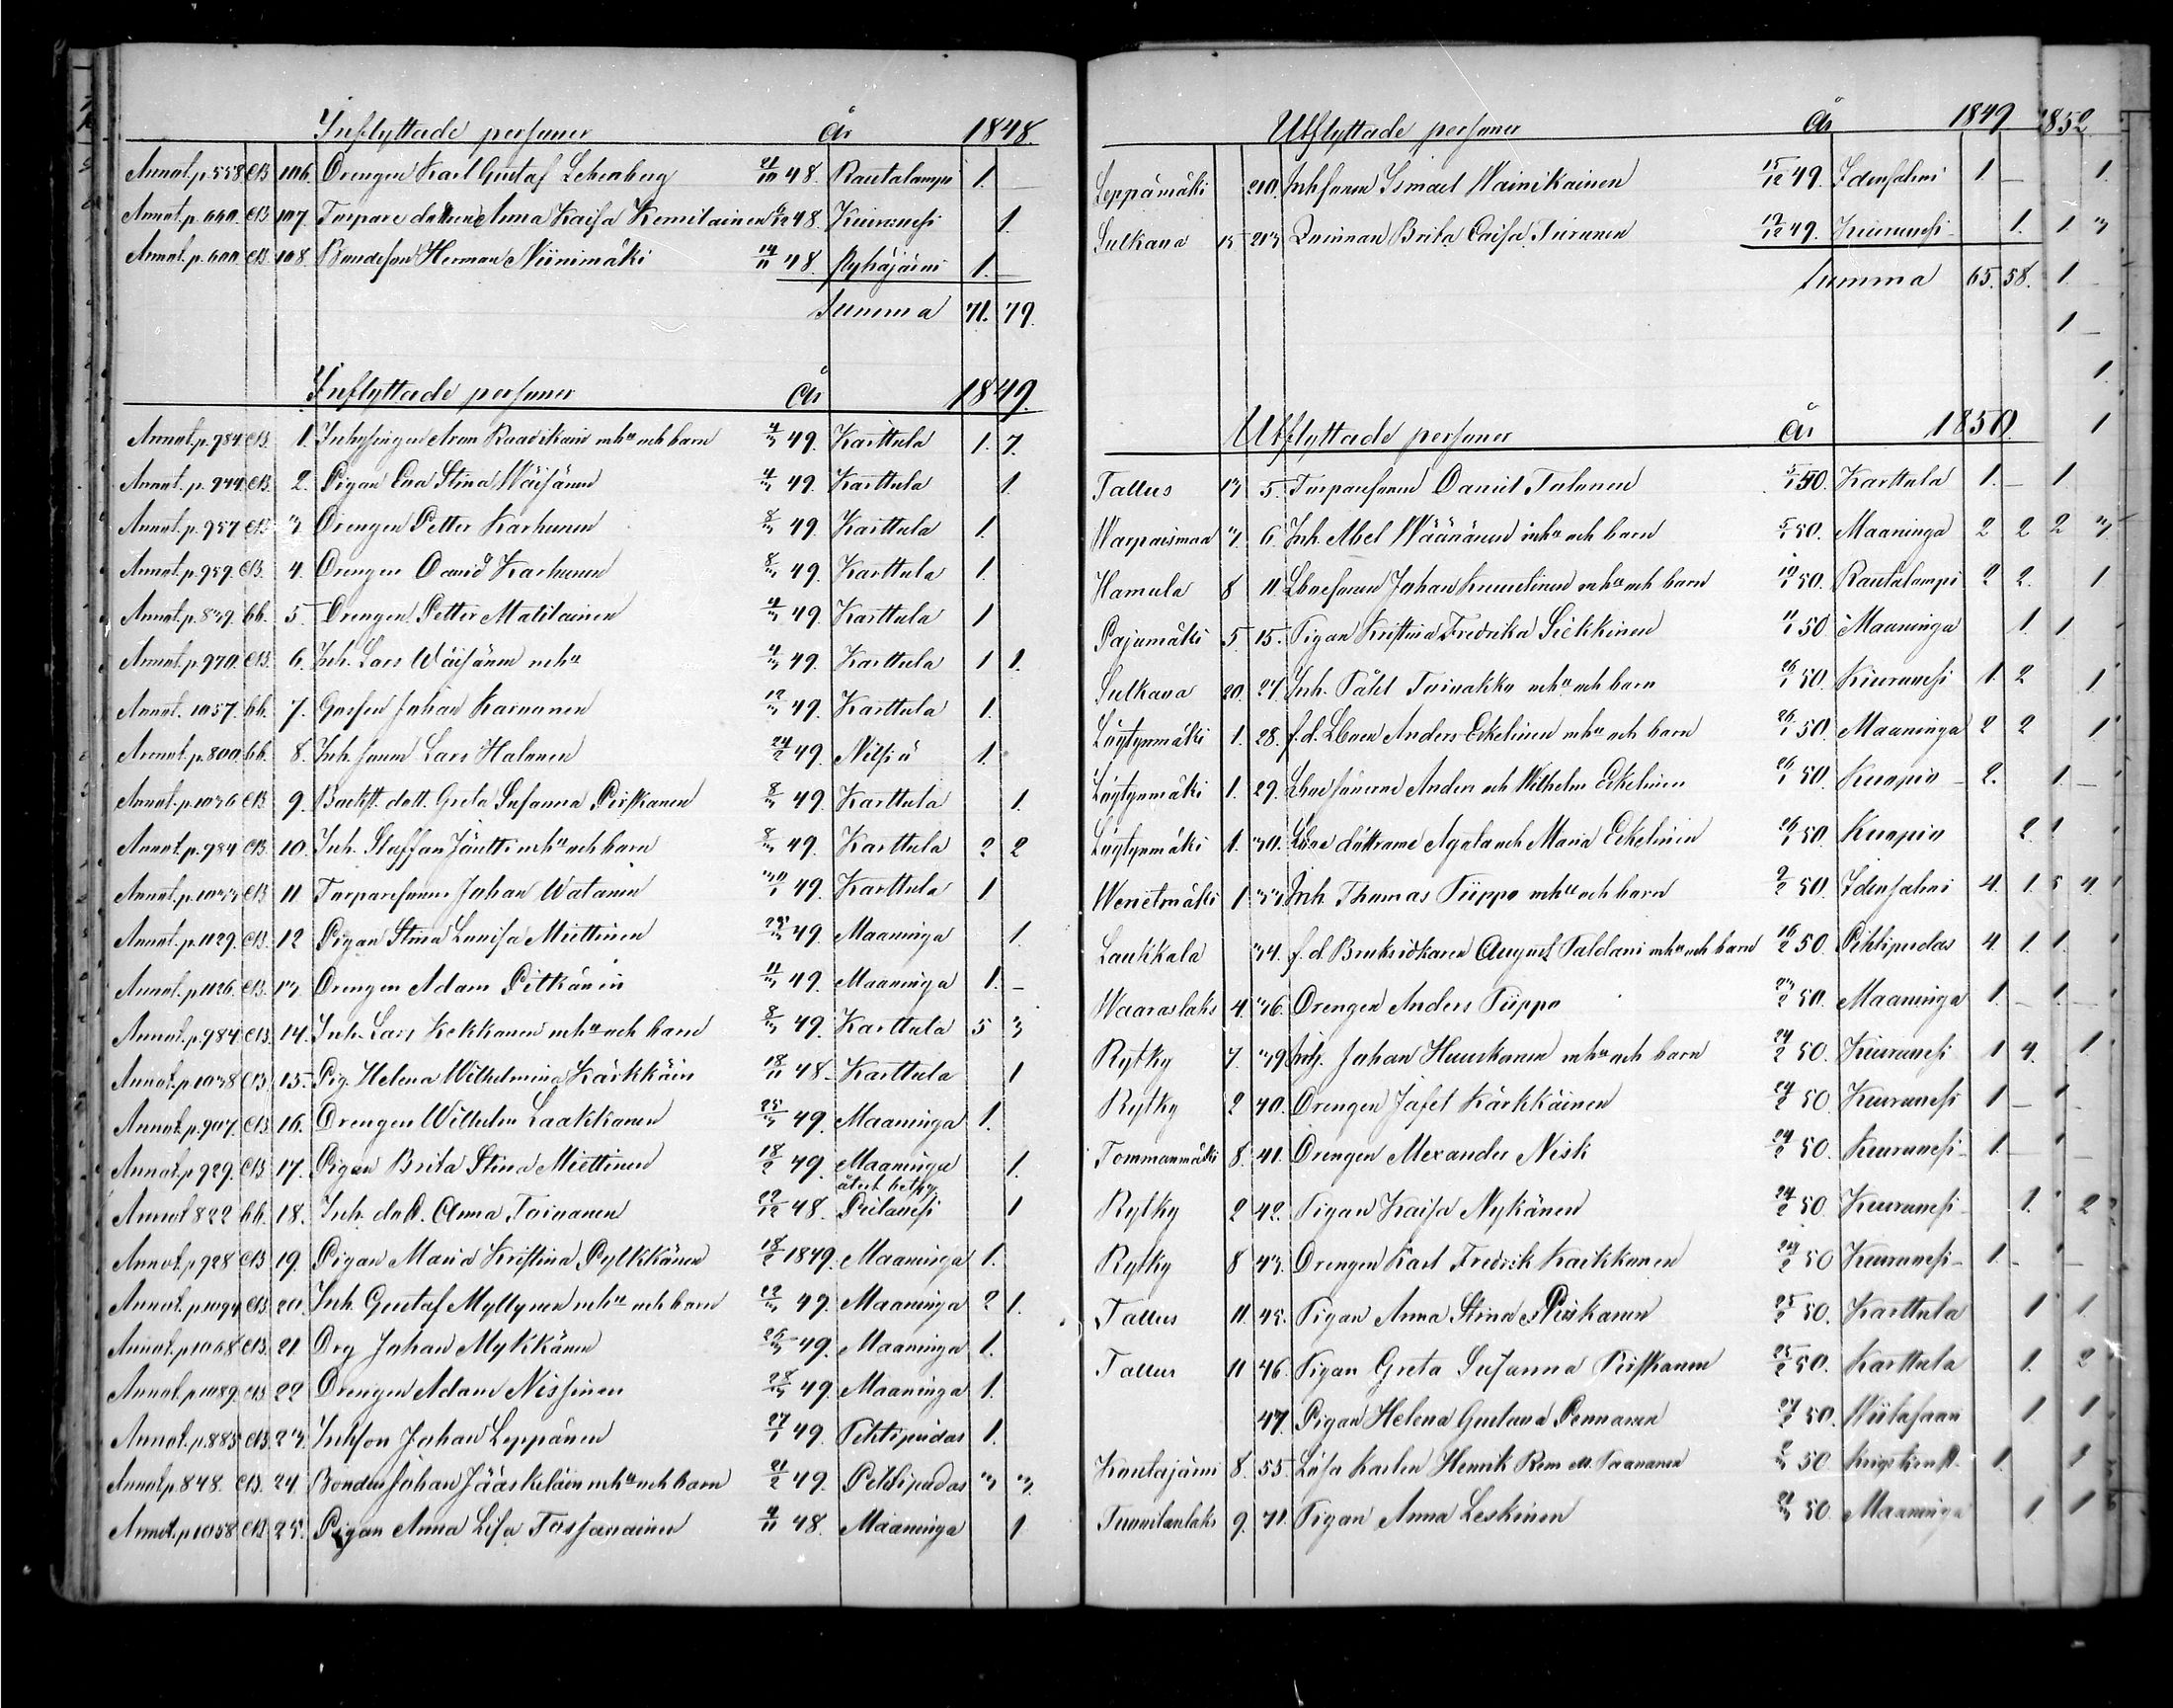 Inflyttade personer år 1848.
Annot. p. 558. CB 106. Drengen Karl Gustaf Lehenberg 21/10 48. Rautalampi 1.
Annot. p. 660. CB. 107. Torpare dottren Anna Kaisa Kemilainen 6/12 48. Kiuruvesi 1.
Annot. p. 600. CB. 108. Bondeson Herman Niinimäki 14/11 48. Pyhäjärvi 1.
Summa 71. 79.
Inflyttade personer år 1849.
Annot. p. 984 CB. 1. Inhysingen Aron Raatikain mha och barn 4/3 49. Karttula 1. 7.
Annot. p. 944. CB. 2. Pigan Eva Stina Wäisänen 4/3 49. Karttula 1.
Annot. p. 957 CB 3 Drengen Petter Karhunen 8/3 49. Karttula 1.
Annot. p. 959. CB. 4. Drengen David Karhunen 8/3 49. Karttula 1.
Annot. p. 839. bb. 5. Drengen Petter Matilainen 4/3 49. Karttula 1
Annot. p. 970. CB. 6. Inh. Lars Wäisänen mha 4/3 49. Karttula 1 1.
Annot. 1057. bb. 7. Gossen Johan Karnanen 12/3 49. Karttula 1.
Annot. p. 800. bb. 8. Inh. sonen Lars Halonen 24/2 49. Nilsiä 1.
Annot. p. 1036 CB 9. Backst. dott. Greta Susanna Pirskanen 8/3 49. Karttula 1.
Annot. p. 984 CB. 10. Inh. Staffan Jäntti mha och barn 8/3 49. Karttula 2 2
Annot. p. 1033 CB 11 Torparesonen Johan Watanen 30/1 49. Karttula 1
Annot. p. 1129. CB. 12 Pigan Stina Lovisa Miettinen 25/3 49. Maaninga 1.
Annot. p. 1126. CB. 13 Drengen Adam Pitkänen 11/3 49. Maaninga 1. –
Annot. p. 984 CB. 14. Inh. Lars Kekkonen mha och barn 8/3 49. Karttula 5 3
Annot. p. 1038 CB. 15. Pig. Helena Wilhelmina Kärkkäin 18/11 48. Karttula 1
Annot. p. 907. CB. 16. Drengen Wilhelm Laakkonen 25/3 49. Maaninga 1.
Annot. p. 929. CB. 17. Pigan Brita Stina Miettinen 18/2 49. Maaninga 1.
återt betyg
Annot 822 bb. 18. Inh. dott. Anna Toinanen 22/12 48. Pielavesi 1
Annot. p. 928 CB 19. Pigan Maria Kristina Pylkkänen 18/2 1849. Maaninga 1.
Annot. p. 1094 CB. 20. Inh. Gustaf Myllynen mha och barn 22/3 49. Maaninga 2 1.
Annot. p. 1068 CB. 21. Drg Johan Mykkänen 26/3 49. Maaninga 1.
Annot. p. 1089. CB 22 Drengen Adam Nissinen 28/3 49. Maaninga 1.
Annot. p. 885 CB. 23. Inhson Johan Leppänen 27/1 49. Pihtipudas 1.
Annot. p. 848. CB. 24. Bonden Johan Jääskeläin mha och barn 21/2 49. Pihtipudas 3 3.
Annot. p. 1058 CB 25. Pigan Anna Lisa Tossavainen 4/11 48. Maaninga 1
Utflyttade personer år 1849 1852
Leppämäki 210. Inhsonen Ismael Wainikainen 15/12 49. Idensalmi 1 – 1.
Sulkava 15 213 Qvinnan Brita Caisa Turunen 19/12 49. Kiuruvesi 1. 1 3
Summa 65. 58. 1.
1 –
1.
Utflyttade personer år 1850. 1
Tallus 13 5. Torparesonen Daniel Tolonen 5/1 50. Karttula 1. – 1
Warpaismaa 3. 6. Inh. Abel Wäänänen mha och barn 5/1 50. Maaninga 2 2 2 3
Hamula 8 11 Lboesonen Johan Knuutinen mha och barn 10/1 50. Rautalampi 2 2. 1
Pajumäki 5. 15. Pigan Kristina Fredrika Siekkinen 11/1 50 Maaninga 1. 1
Sulkava 20. 27. Inh. Påhl Toivakka mha och barn 26/1 50. Kiuruvesi 1. 2 1
Löytynmäki 1. 28. f.d. Lboen Anders Eskelinen mha och barn 26/1 50. Maaninga 2 2 1
Löytynmäki 1. 29. Lboesönerne Anders och Wilhelm Eskelinen 26/1 50. Kuopio – 2. 1. –
Löytynmäki 1. 30. Lboe döttrarne Agata och Maria Eskelinen 26/1 50. Kuopio 2 1
Wenetmäki 1 33. Inh. Thomas Piippo mha och barn 9/2 50. Idensalmi 4. 1. 5 4
Laukkala 34. f.d. Bruksidkaren August Taldani mha och barn 16/2 50. Pihtipudas 4 1. 1.
Waaraslaks 4. 36. Drengen Anders Piippo 23/2 50. Maaninga 1. – 1. –
Rytky 7. 39 Inh. Johan Huuskonen mha och barn 24/2 50. Kiuruvesi 1 4. 1.
Rytky 2 40. Drengen Jafet Kärkkäinen 24/2 50. Kiuruvesi 1 – 1 –
Tommonmäki 8. 41. Drengen Alexander Nisk 24/2 50. Kiuruvesi 1. –
Rytky 2 42. Pigan Kaisa Nykänen 24/2 50 Kiuruvesi 1. 2
Rytky 8 43. Drengen Karl Fredrik Kaikkonen 24/2 50 Kiuruvesi 1 – –
Tallus 11. 45. Pigan Anna Stina Pirskanen 25/2 50. Karttula 1 1
Tallus 11 46. Pigan Greta Susanna Pirskanen 25/2 50. Karttula 1. 2
47. Pigan Helena Gustava Pennanen 27/2 50. Wiitasaari 1 1
Koutajärvi 8. 55. Lösa Karlen Henrik 50 1. 1
9. 71. Pigan Anna Leskinen 50. Maaninga 1 1